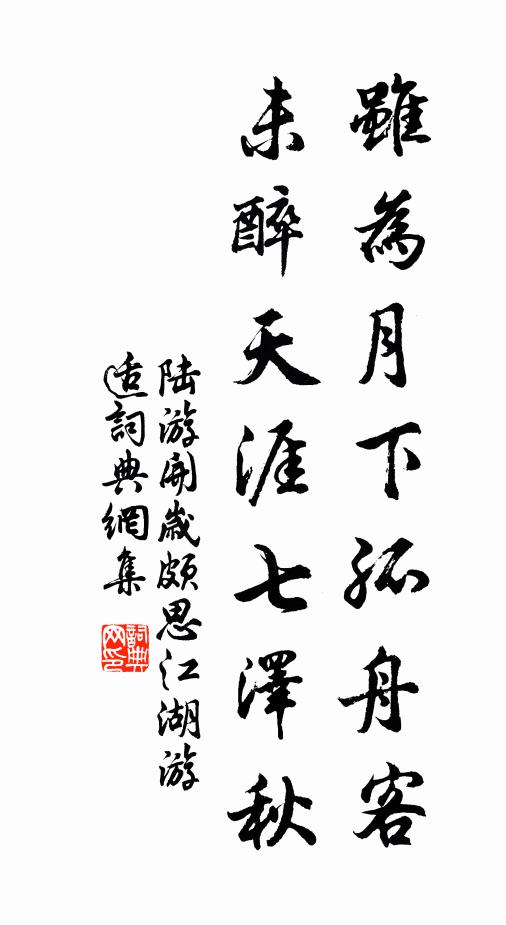 雖為月下孤舟客
未醉天涯七澤秋
陆游開歲頗思江湖游
适詞典網集
詞典
网印